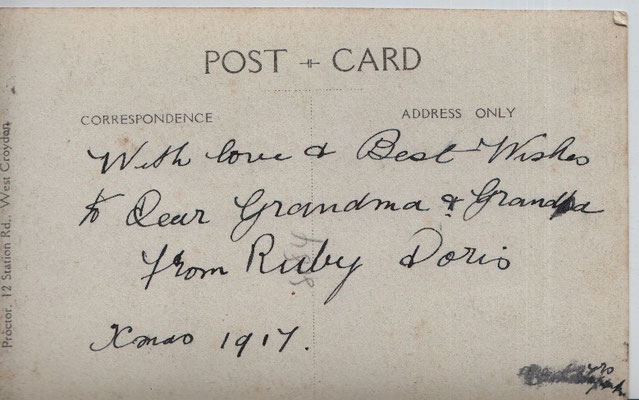 POST CARD
CORRESPONDENCE
ADDRESS ONLY
With love & Best Wishes
to Dear Grandma & Grandpa
from Ruby Doris
Xmas 1917.
Proctor, 12 Station Rd., West Croydon